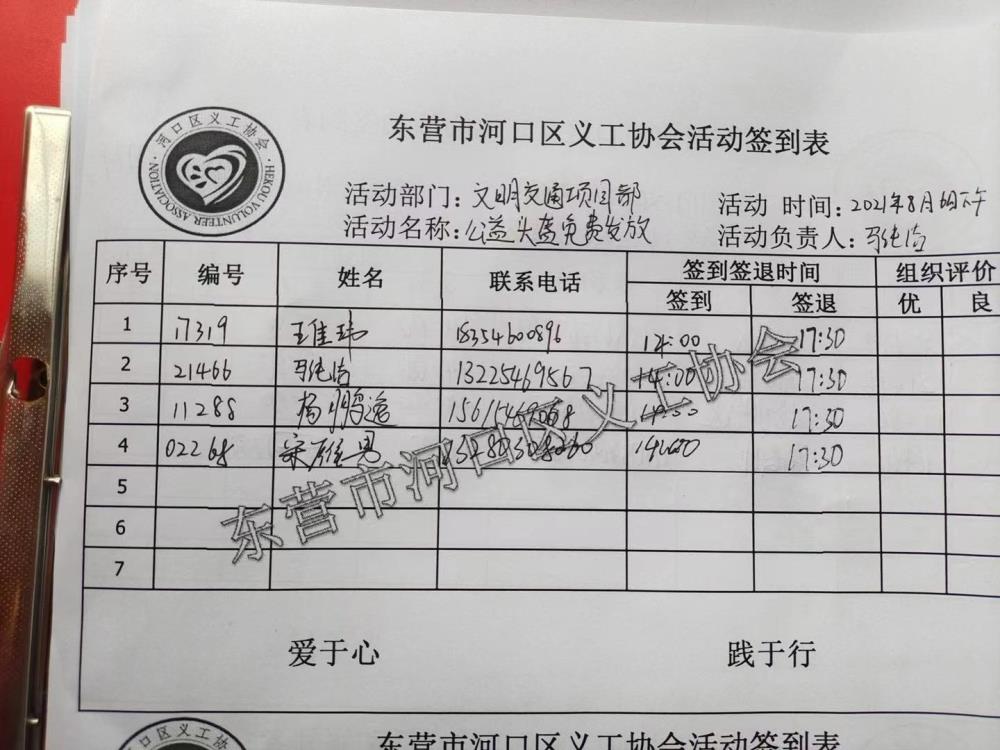 河口区义工协会
HEKOU VOLUNTEER ASSOCIATION
东营市河口区义工协会活动签到表
活动部门：文明交通项目部
活动 时间：2021年8月 下午
活动名称：公益头盔免费发放
活动负责人：
序号 编号 姓名 联系电话 签到签退时间 组织评价
签到 签退 优 良
1 17319 王佳玮 18354600896 14:00 17:30
2 21466 13225469567 14:00 17:30
3 11288 杨鹏逸 17:30
4 02268 17:30
5
6
7
东营市河口区义工协会
爱于心 践于行
河口区义工协会
东营市河口区义工协会活动签到表